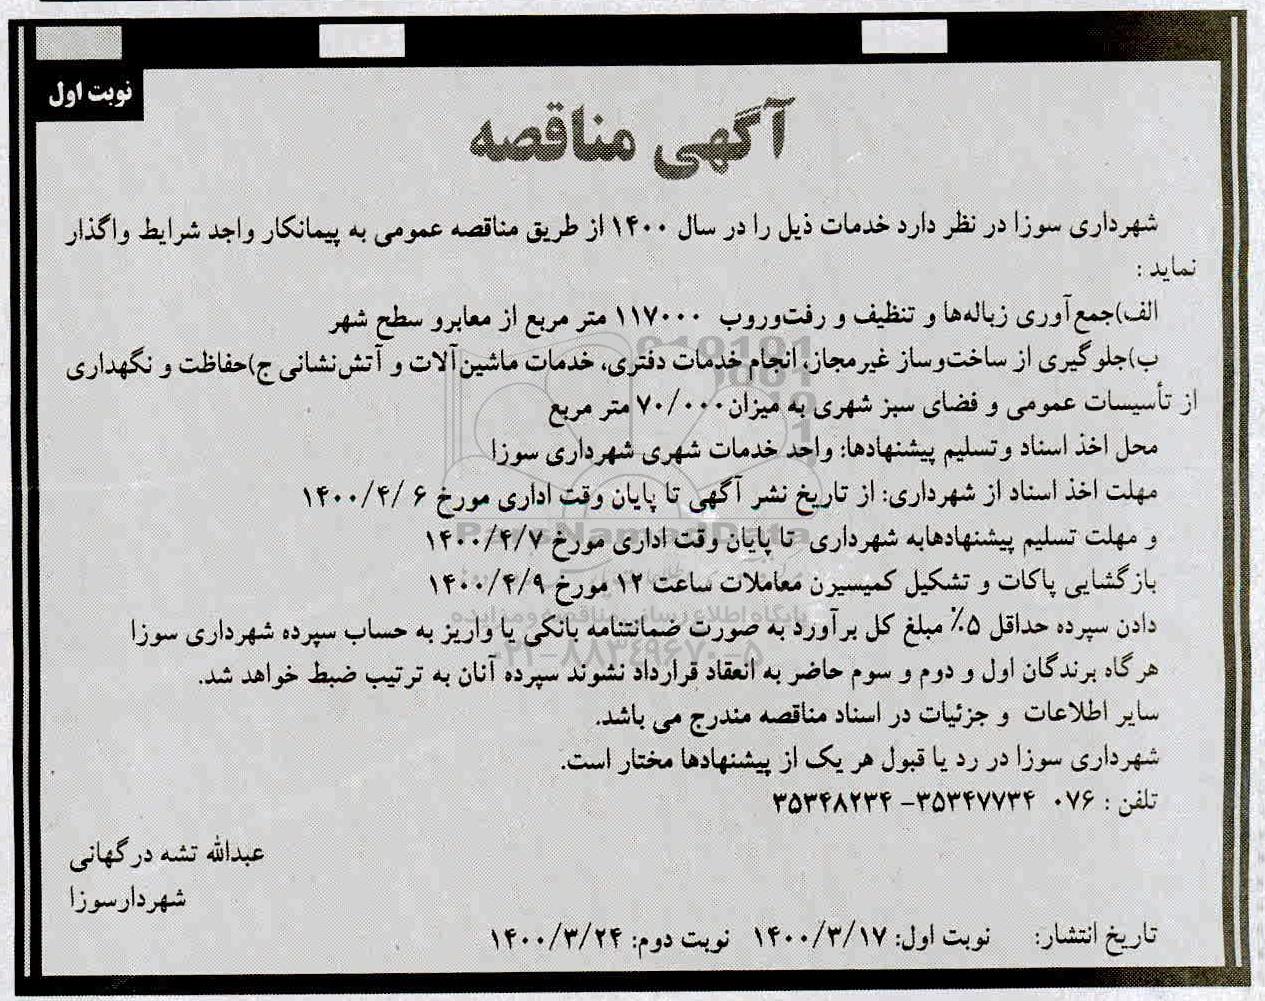 نوبت اول
آگهی مناقصه
شهرداری سوزا در نظر دارد خدمات ذیل را در سال ۱۴۰۰ از طریق مناقصه عمومی به پیمانکار واجد شرایط واگذار
نماید :
الف)جمع‌آوری زباله‌ها و تنظیف و رفت‌وروب ۱۱۷۰۰۰ متر مربع از معابرو سطح شهر
ب)جلوگیری از ساخت‌وساز غیرمجاز، انجام خدمات دفتری، خدمات ماشین‌آلات و آتش‌نشانی ج)حفاظت و نگهداری
از تأسیسات عمومی و فضای سبز شهری به میزان۷۰/۰۰۰ متر مربع
محل اخذ اسناد وتسلیم پیشنهادها: واحد خدمات شهری شهرداری سوزا
مهلت اخذ اسناد از شهرداری: از تاریخ نشر آگهی تا پایان وقت اداری مورخ ۶ /۱۴۰۰/۴
و مهلت تسلیم پیشنهادهابه شهرداری تا پایان وقت اداری مورخ ۱۴۰۰/۴/۷
بازگشایی پاکات و تشکیل کمیسیرن معاملات ساعت ۱۲ مورخ ۱۴۰۰/۴/۹
دادن سپرده حداقل ۵٪ مبلغ کل برآورد به صورت ضمانتنامه بانکی یا واریز به حساب سپرده شهرداری سوزا
هرگاه برندگان اول و دوم و سوم حاضر به انعقاد قرارداد نشوند سپرده آنان به ترتیب ضبط خواهد شد.
سایر اطلاعات و جزئیات در اسناد مناقصه مندرج می باشد.
شهرداری سوزا در رد یا قبول هر یک از پیشنهادها مختار است.
تلفن : ۰۷۶ ۳۵۳۴۷۷۳۴- ۳۵۳۴۸۲۳۴
عبدالله تشه درگهانی
شهردارسوزا
تاریخ انتشار: نوبت اول: ۱۴۰۰/۳/۱۷ نوبت دوم: ۱۴۰۰/۳/۲۴
ParsNamadData
پایگاه اطلاع رسانی مناقصه و مزایده
۰۲۱-۸۸۳۴۹۶۷۰-۵